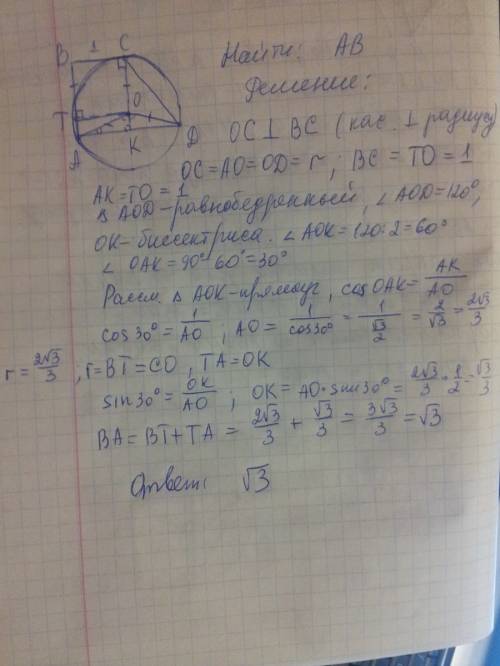 B 1 C
Найти: AB
Решение:
O
T
A
K
D
OC ⊥ BC (кас. ⊥ радиусу)
OC = AO = OD = r ; BC = TO = 1
AK = TO = 1
Δ AOD - равнобедренный, ∠ AOD = 120°,
OK - биссектриса. ∠ AOK = 120 : 2 = 60°
∠ OAK = 90° - 60° = 30°
Рассм. Δ AOK - прямоуг, cos OAK = AK/AO
cos 30° = 1/AO ; AO = 1/cos 30° = 1/(√3/2) = 2/√3 = 2√3/3
r = 2√3/3 , r = BT = CO , TA = OK
sin 30° = OK/AO ; OK = AO · sin 30° = 2√3/3 · 1/2 = √3/3
BA = BT + TA = 2√3/3 + √3/3 = 3√3/3 = √3
Ответ: √3